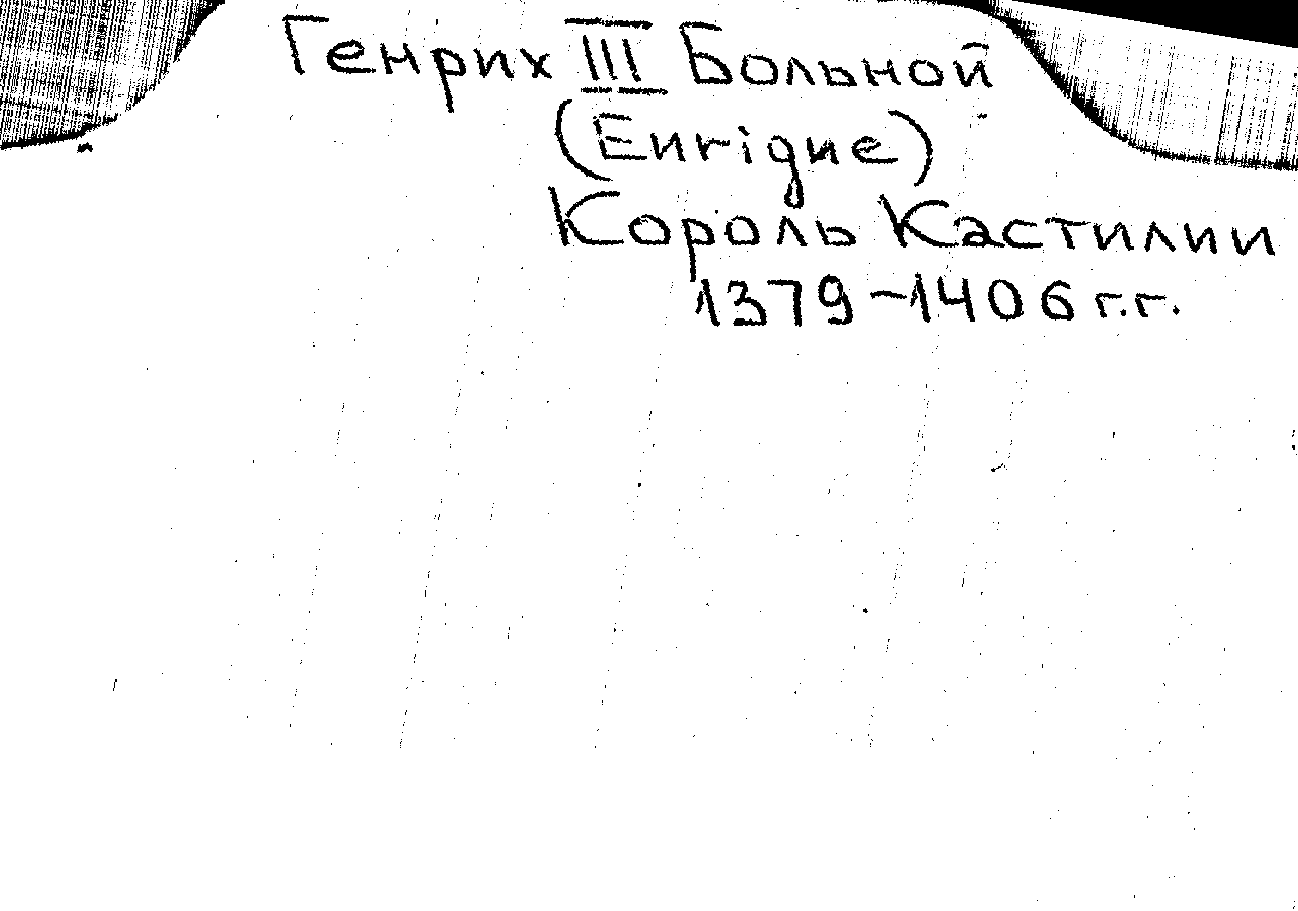 Генрих III Больной
(Enrique)
Король Кастилии
1379-1406 г.г.